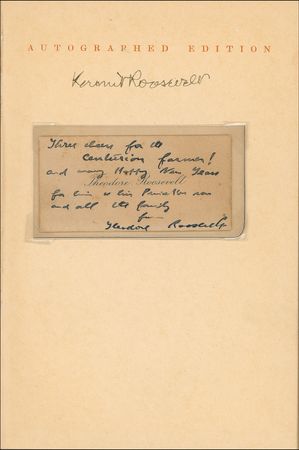 AUTOGRAPHED EDITION
Kermit Roosevelt
Three cheers for the
Centurion farmer!
and many Happy New Years
Theodore Roosevelt
for him & his son
and all the family
from
Theodore Roosevelt